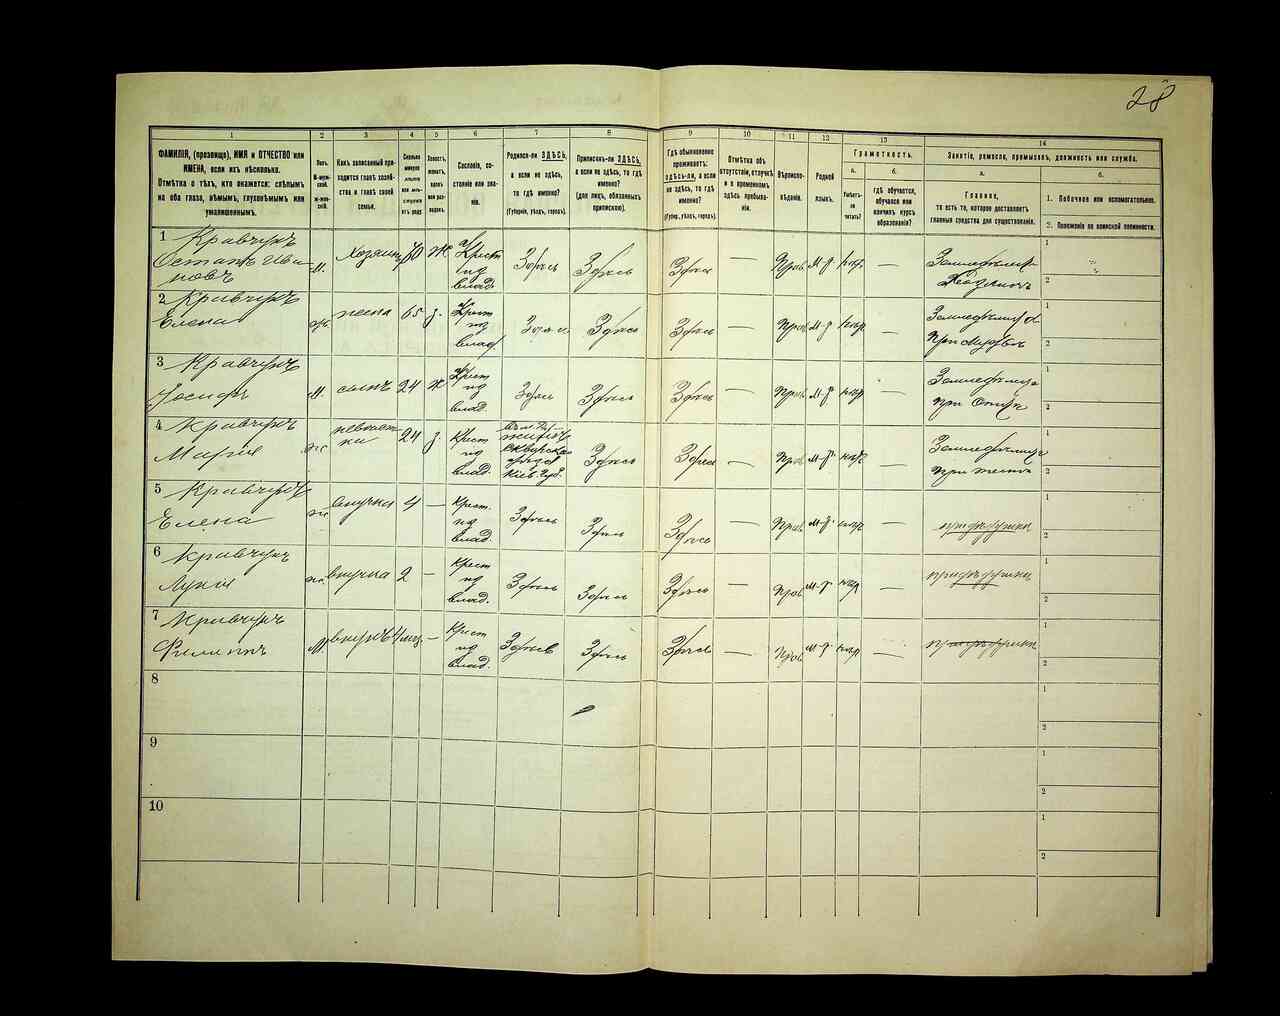 28
1 2 3 4 5 6 7 8 9 10 11 12 13 14
ФАМИЛІЯ, (прозвище), ИМЯ и ОТЧЕСТВО или
ИМЕНА, если ихъ нѣсколько.
Отмѣтка о тѣхъ, кто окажется: слѣпымъ
на оба глаза, нѣмымъ, глухонѣмымъ или
умалишеннымъ.
Полъ.
М-мужской.
Ж-женскій.
Какъ записанный приходится главѣ хозяйства и главѣ своей семьи.
Сословіе, состояніе или званіе.
Родился-ли ЗДѢСЬ,
а если не здѣсь,
то гдѣ именно?
(Губернія, уѣздъ, городъ).
Приписанъ-ли ЗДѢСЬ,
а если не здѣсь, то гдѣ
именно?
(для лицъ, обязанныхъ
припискою).
Гдѣ обыкновенно
проживаетъ:
здѣсь-ли, а если
не здѣсь, то гдѣ
именно?
(Губерн., уѣздъ, городъ).
Отмѣтка объ
отсутствіи, отлучкѣ
и о временномъ
здѣсь пребываніи.
Вѣроисповѣданіе.
Родной
языкъ.
Грамотность.
а.
Умѣетъ-ли
читать?
б.
гдѣ обучается,
обучался или
кончилъ курсъ
образованія?
Занятіе, ремесло, промыселъ, должность или служба.
а.
Главное,
то есть то, которое доставляетъ
главныя средства для существованія.
б.
1. Побочное или вспомогательное.
2. Положеніе по воинской повинности.
1 Кравчукъ
Остапъ Ивановъ
М. Хозяинъ 70 Ж Крест. изъ влад. Здѣсь Здѣсь Здѣсь — Прав. М-р. нѣтъ — Земледѣлецъ Хозяинъ
2 Кравчукъ
Елена
ж. жена 65 з. Крест. изъ влад. Здѣсь Здѣсь Здѣсь — Прав. М-р. нѣтъ — При мужѣ
3 Кравчукъ
Іосифъ
М. сынъ 24 ж Крест. изъ влад. Здѣсь Здѣсь Здѣсь — Прав. М-р. нѣтъ — при отцѣ
4 Кравчукъ
Марія
ж. невѣстка 24 з. Крест. изъ влад. Сквирскаго уѣзда Кіев. губ. Здѣсь Здѣсь — Прав. М-р. нѣтъ —
5 Кравчукъ
Елена
ж. внучка 4 — Крест. изъ влад. Здѣсь Здѣсь Здѣсь — Прав. М-р. нѣтъ —
6 Кравчукъ
Лукія
ж. внучка 2 — Крест. изъ влад. Здѣсь Здѣсь Здѣсь — Прав. М-р. нѣтъ —
7 Кравчукъ
Филиппъ
М. внукъ 4 мѣс. — Крест. изъ влад. Здѣсь Здѣсь Здѣсь — Прав. М-р. нѣтъ —
8
9
10